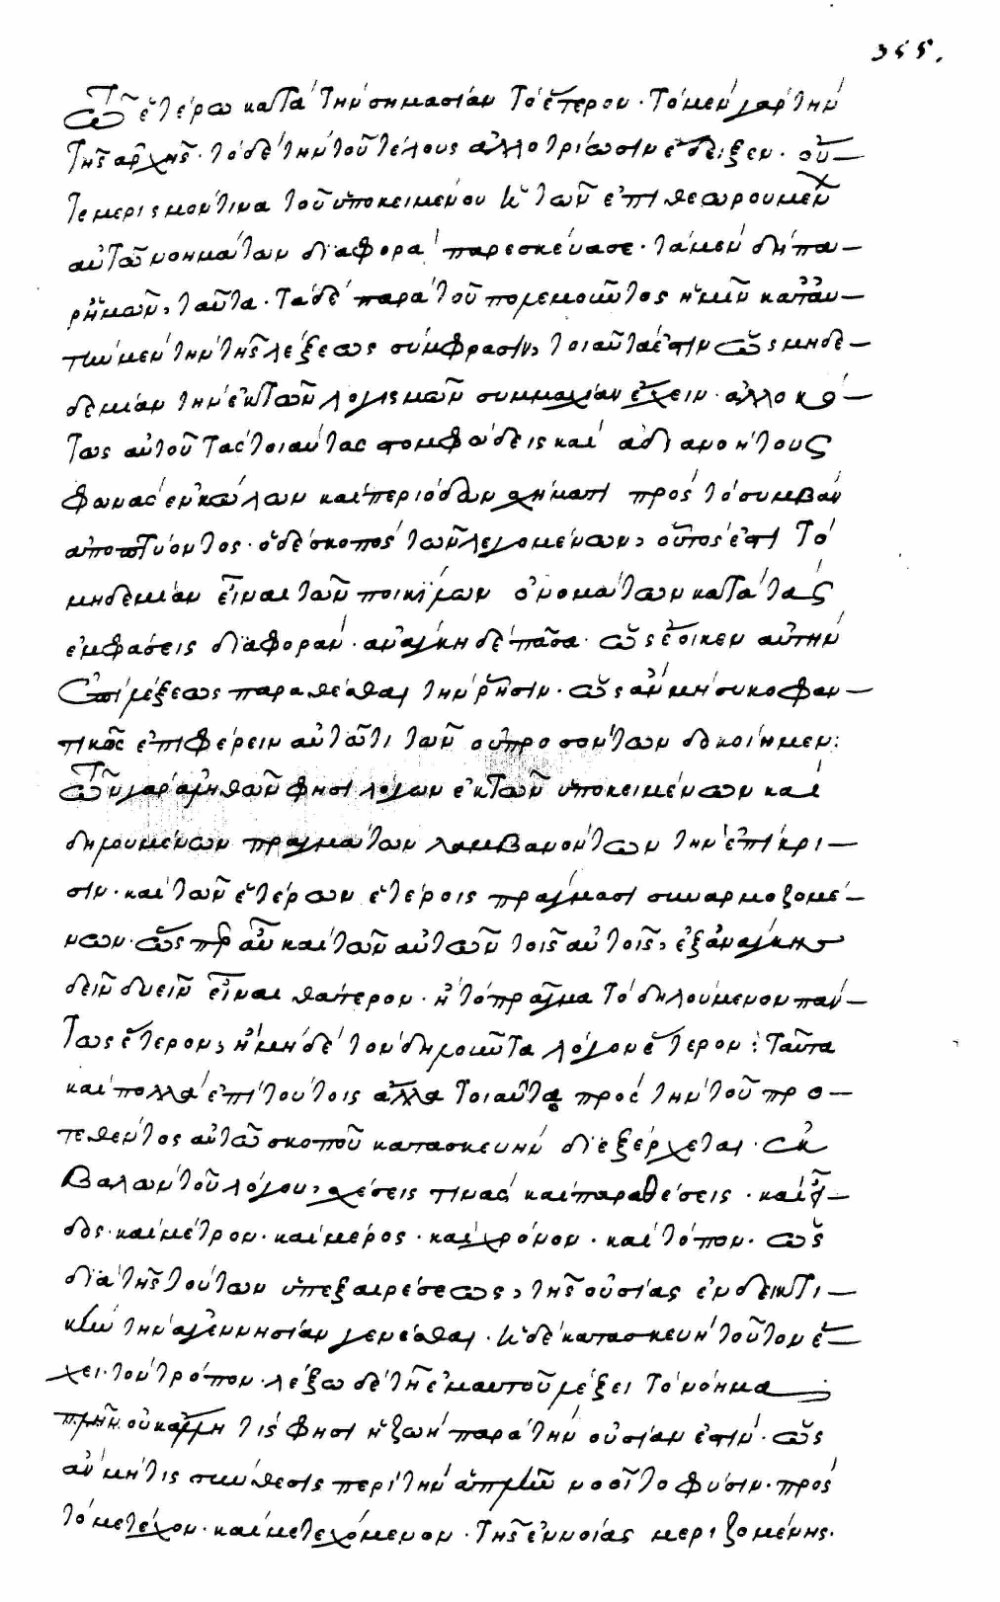 355.
τῶ ἑτέρω κατὰ τὴν σημασίαν τὸ ἕτερον· τὸ μὲν γὰρ τὴν
τῆς ἀρχῆς· τὸ δὲ τὴν τοῦ τέλους ἀλλοτρίωσιν ἔδειξεν· οὔ-
τε μερισμόν τινα τοῦ ὑποκειμένου ἡ τῶν ἐπιθεωρουμένων
αὐτῶ νοημάτων διαφορὰ παρεσκεύασε· τὰ μὲν δὴ πα-
ρ' ἡμῶν, ταῦτα· τὰ δὲ παρὰ τοῦ πολεμοῦντος ἡμῖν κατ' αὐ-
τὴν μὲν τὴν τῆς λέξεως σύμφρασιν, τοιαῦτά ἐστιν ὡς μηδε-
δεμίαν τὴν ἐκ τῶν λογισμῶν συμμαχίαν ἔχειν· ἀλλοκό-
τως αὐτοῦ τὰς τοιαύτας στομφώδεις καὶ ἀδιανοήτους
φωνὰς ἐν κώλων καὶ περιόδων σχήματι πρὸς τὸ συμβὰν
ἀποπτύοντος· ὁ δὲ σκοπὸς τῶν λεγομένων, οὗτός ἐστι τὸ
μηδεμίαν εἶναι τῶν ποικίλων ὀνομάτων κατὰ τὰς
ἐμφάσεις διαφοράν· ἀνάγκη δὲ πᾶσα· ὡς ἔοικεν αὐτὴν
ἐπὶ λέξεως παραθέσθαι τὴν ῥῆσιν· ὡς ἂν μὴ συκοφαν-
τικῶς ἐπιφέρειν αὐτῶ τι τῶν οὐ προσόντων δοκοίημεν:
τῶν γὰρ ἀληθῶν φησι λόγων ἐκ τῶν ὑποκειμένων καὶ
δηλουμένων πραγμάτων λαμβανόντων τὴν ἐπίκρι-
σιν· καὶ τῶν ἑτέρων ἑτέροις πράγμασι συναρμοζομέ-
νων· ὥσπερ αὖ καὶ τῶν αὐτῶν τοῖς αὐτοῖς, ἐξ ἀνάγκης
δεῖν δυεῖν εἶναι θάτερον· ἢ τὸ πρᾶγμα τὸ δηλούμενον πάν-
τως ἕτερον, ἢ μὴ δὲ τὸν δηλοῦντα λόγον ἕτερον: ταῦτα
καὶ πολλὰ ἐπὶ τούτοις ἄλλα τοιαῦτα πρὸς τὴν τοῦ προ-
τεθέντος αὐτῶ σκοποῦ κατασκευὴν διεξέρχεται· ἐκ
βαλὼν τοῦ λόγου, σχέσεις τινὰς καὶ παραθέσεις· καὶ εἶ-
δος· καὶ μέτρον· καὶ μέρος· καὶ χρόνον· καὶ τόπον· ὡς
διὰ τῆς τούτων ὑπεξαιρέσεως, τῆς οὐσίας ἐνδεικτι-
κὴν τὴν ἀγεννησίαν γενέσθαι· ἡ δὲ κατασκευὴ τοῦτον ἔ-
χει· τὸν τρόπον· λέξω δὲ τῆ ἐμαυτοῦ λέξει τὸ νόημα
πλὴν οὐκ ἄλλη τίς φησι ἡ ζωὴ παρὰ τὴν οὐσίαν ἐστίν· ὡς
ἂν μή τις σύνθεσις περὶ τὴν ἁπλῆν νοοῖτο φύσιν· πρὸς
τὸ μετέχον· καὶ μετεχόμενον· τῆς ἐννοίας μεριζομένης·